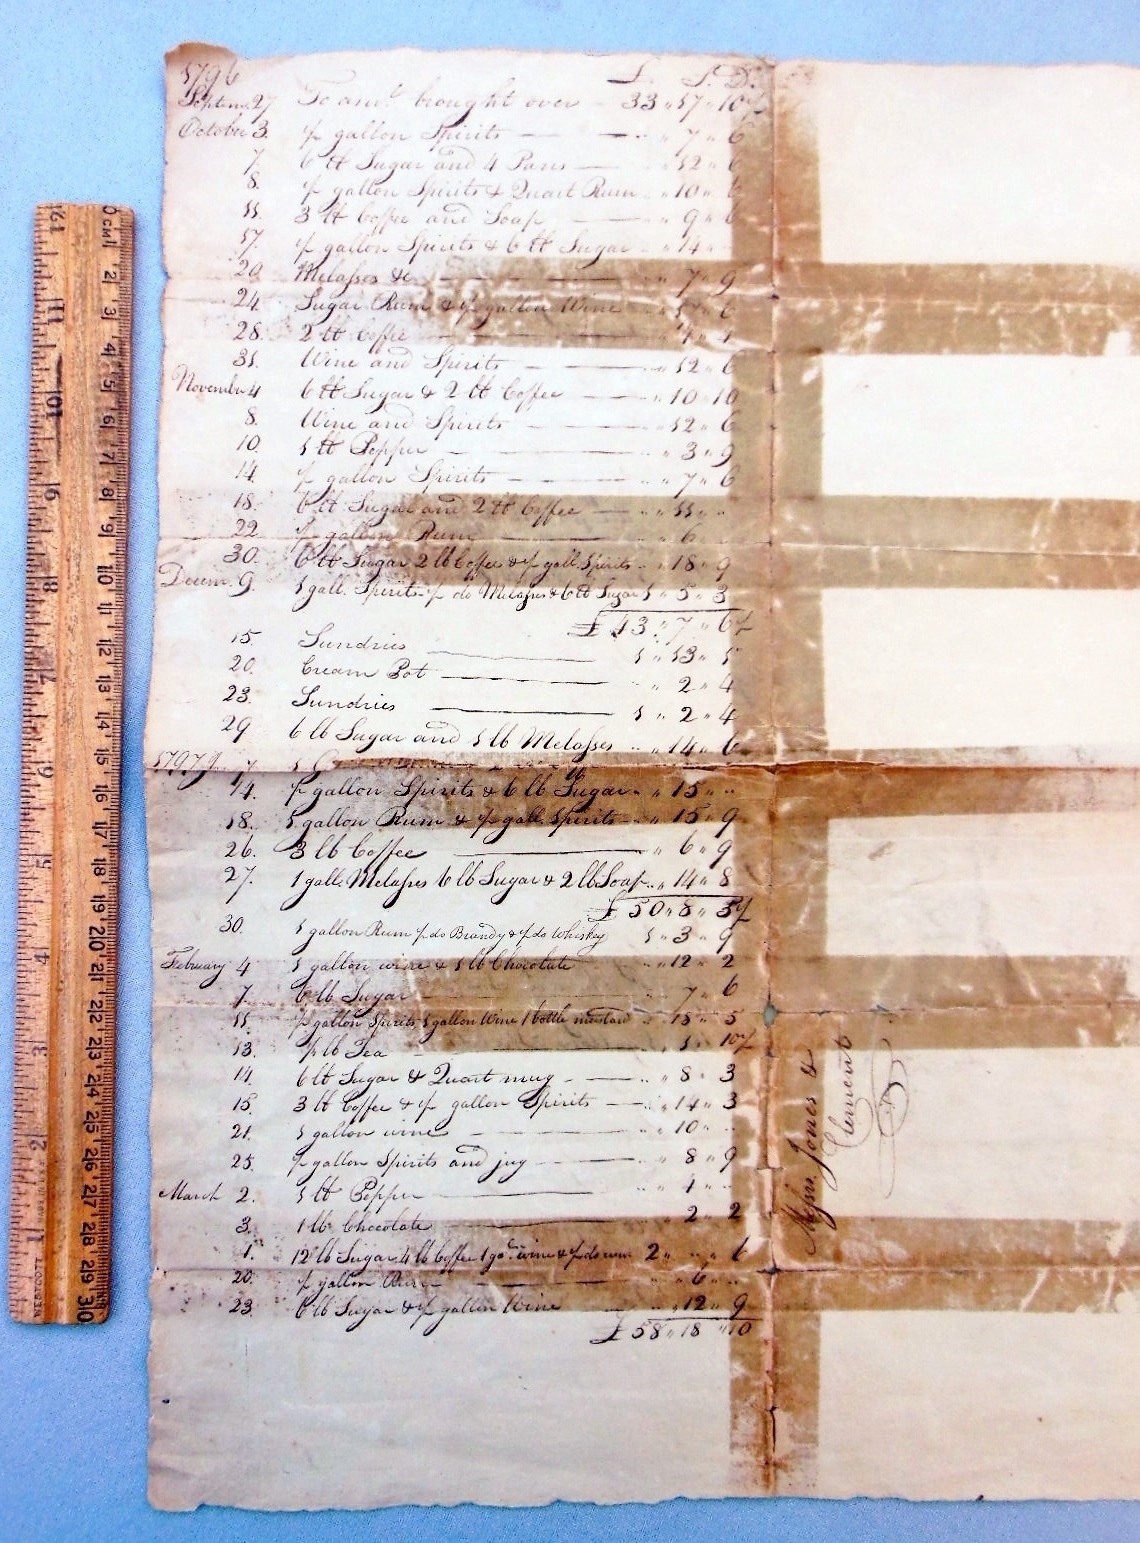 1796
£. S. D.
Septem. 27 To amt. brought over - 33 " 17 " 10½
October 3. ½ gallon Spirits — — " 7 " 6
7. 6 lb Sugar and 4 Pans — " 12 " 6
8. ½ gallon Spirits & Quart Rum — " 10 " 6
11. 3 lb Coffee and Soap — " 9 " 6
17. ½ gallon Spirits & 6 lb Sugar " 14 "
20. Melasses &c — " 7 " 9
24. Sugar Rum & ½ gallon Wine — " 17 " 6
28. 2 lb Coffee — " 4 " 4
31. Wine and Spirits — " 12 " 6
November 4 6 lb Sugar & 2 lb Coffee — " 10 " 10
8. Wine and Spirits — " 12 " 6
10. 1 lb Pepper — " 3 " 9
14. ½ gallon Spirits — " 7 " 6
18. 6 lb Sugar and 2 lb Coffee — " 11 " "
22. ½ gallon Rum — " 6 "
30. 6 lb Sugar 2 lb Coffee & ½ gall. Spirits " 18 " 9
Decem. 9. 1 gall. Spirits ½ do Melasses & 6 lb Sugar 1 " 5 " 3
£ 43 " 7 " 6½
15. Sundries — 1 " 13 " 5
20. Cream Pot — " 2 " 4
23. Sundries — 1 " 2 " 4
29 6 lb Sugar and 1 lb Melasses — " 14 " 6
1797 J. 7. 1
14. ½ gallon Spirits & 6 lb Sugar " 15 " "
18. 1 gallon Rum & ½ gall. Spirits " 15 " 9
26. 3 lb Coffee — " 6 " 9
27. 1 gall. Melasses 6 lb Sugar & 2 lb Soap " 14 " 8
£ 50 " 8 " 5½
30. 1 gallon Rum ½ do Brandy & ½ do Whiskey 1 " 3 " 9
February 4 1 gallon wine & 1 lb Chocolate " 12 " 2
7. 6 lb Sugar — 7 " 6
11. ½ gallon Spirits, 1 gallon Wine 1 bottle mustard " 18 " 5
13. ½ lb Tea — " 1 " 10½
14. 6 lb Sugar & Quart mug — " 8 " 3
15. 3 lb Coffee & ½ gallon Spirits — " 14 " 3
21. 1 gallon wine — " 10 " "
25. ½ gallon Spirits and jug — " 8 " 9
March 2. 1 lb Pepper — " 4 " "
3. 1 lb Chocolate — 2 " 2
1. 12 lb Sugar 4 lb Coffee 1 gal. wine & ½ do rum 2 " " " 6
20. ½ gallon Rum — " 6 " "
23. 6 lb Sugar & ½ gallon Wine " 12 " 9
£ 58 " 18 " 10
Messrs. Jones &
Clement